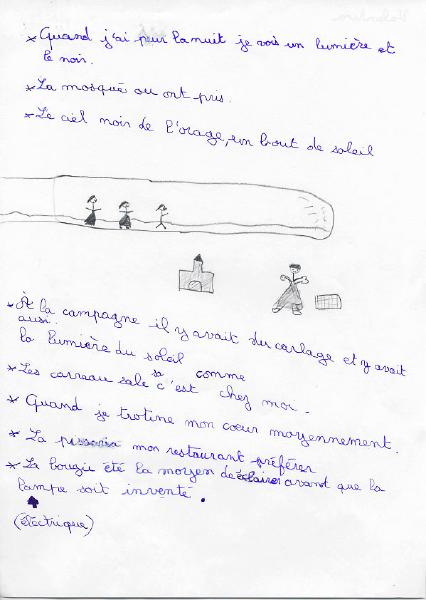 *Quand j'ai peur la nuit je vois un lumière et
le noir.
*La mosqué ou ont pris.
*Le ciel noir de l'orage, un bout de soleil
*À la campagne il y avait du carlage et y avait
aussi.
la lumière du soleil
*Les carreau sale sa c'est comme chez moi.
*Quand je trotine mon cœur moyennement.
*La pissaria mon restaurant préférer
*La bougie été la moyen de éclairer avant que la
lampe soit inventé.
(électrique)